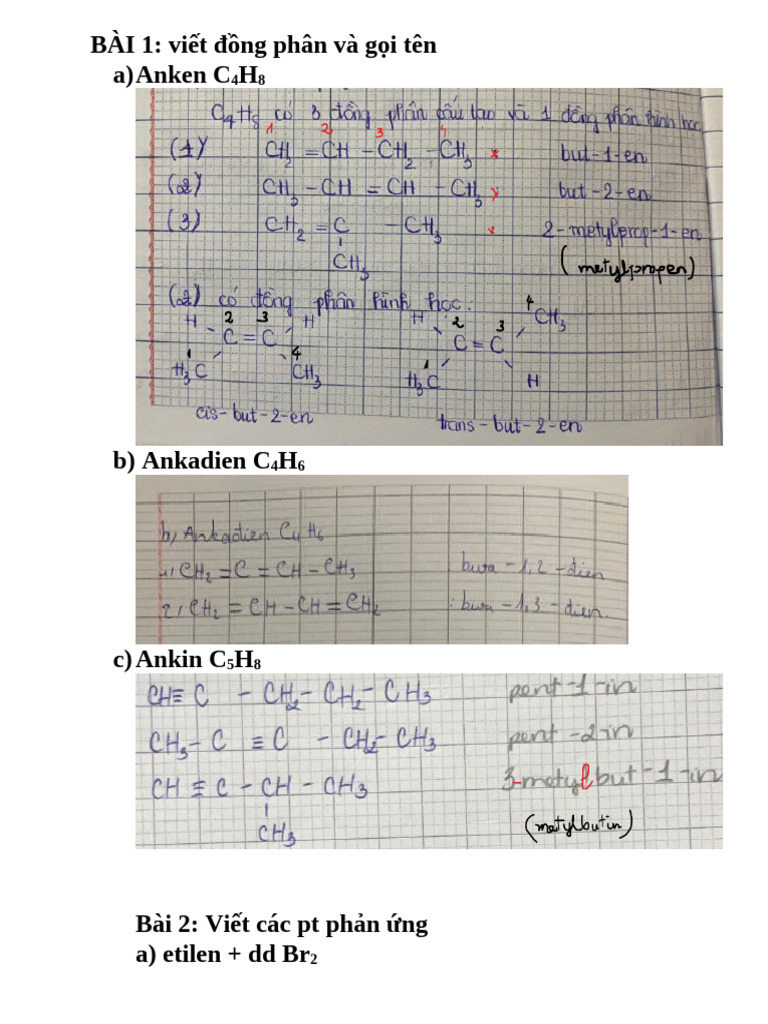 BÀI 1: viết đồng phân và gọi tên
a) Anken C₄H₈
C₄H₈ có 3 đồng phân cấu tạo và 1 đồng phân hình học
1 2 3 4
(1) CH₂ = CH – CH₂ – CH₃ × but-1-en
(2) CH₃ – CH = CH – CH₃ × but-2-en
(3) CH₂ = C – CH₃ × 2-metylprop-1-en
CH₃ (metylpropen)
(2) có đồng phân hình học:
H 2 3 H H 2 3 4 CH₃
C = C C = C
1 H₃C 4 CH₃ 1 H₃C H
cis-but-2-en trans-but-2-en
b) Ankadien C₄H₆
b, Ankadien C₄H₆
1, CH₂ = C = CH – CH₃ : buta-1,2-dien
2, CH₂ = CH – CH = CH₂ : buta-1,3-dien.
c) Ankin C₅H₈
CH ≡ C – CH₂ – CH₂ – CH₃ pent-1-in
CH₃ – C ≡ C – CH₂ – CH₃ pent-2-in
CH ≡ C – CH – CH₃ 3-metylbut-1-in
CH₃ (metylbutin)
Bài 2: Viết các pt phản ứng
a) etilen + dd Br₂